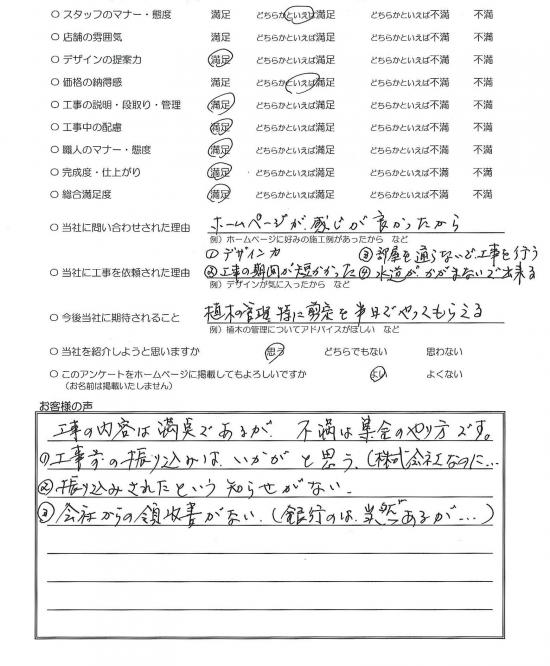 ○ スタッフのマナー・態度　満足　どちらかといえば満足　どちらかといえば不満　不満
○ 店舗の雰囲気　満足　どちらかといえば満足　どちらかといえば不満　不満
○ デザインの提案力　満足　どちらかといえば満足　どちらかといえば不満　不満
○ 価格の納得感　満足　どちらかといえば満足　どちらかといえば不満　不満
○ 工事の説明・段取り・管理　満足　どちらかといえば満足　どちらかといえば不満　不満
○ 工事中の配慮　満足　どちらかといえば満足　どちらかといえば不満　不満
○ 職人のマナー・態度　満足　どちらかといえば満足　どちらかといえば不満　不満
○ 完成度・仕上がり　満足　どちらかといえば満足　どちらかといえば不満　不満
○ 総合満足度　満足　どちらかといえば満足　どちらかといえば不満　不満
○ 当社に問い合わせされた理由　ホームページが、感じが良かったから
例）ホームページに好みの施工例があったから　など
①デザイン力　③部屋を通らないで工事を行う
○ 当社に工事を依頼された理由　②工事の期間が短かかった　④水道が、かがまないで出来る
例）デザインが気に入ったから　など
○ 今後当社に期待されること　植木の管理 特に剪定を半日でやってもらえる
例）植木の管理についてアドバイスがほしい　など
○ 当社を紹介しようと思いますか　思う　どちらでもない　思わない
○ このアンケートをホームページに掲載してもよろしいですか　よい　よくない
（お名前は掲載いたしません）
お客様の声
工事の内容は満足であるが、不満は集金のやり方です。
①工事前の振り込みは、いかがと思う、（株式会社なのに…
②振り込みされたという知らせがない、
③会社からの領収書がない、（銀行のは、当然あるが…）